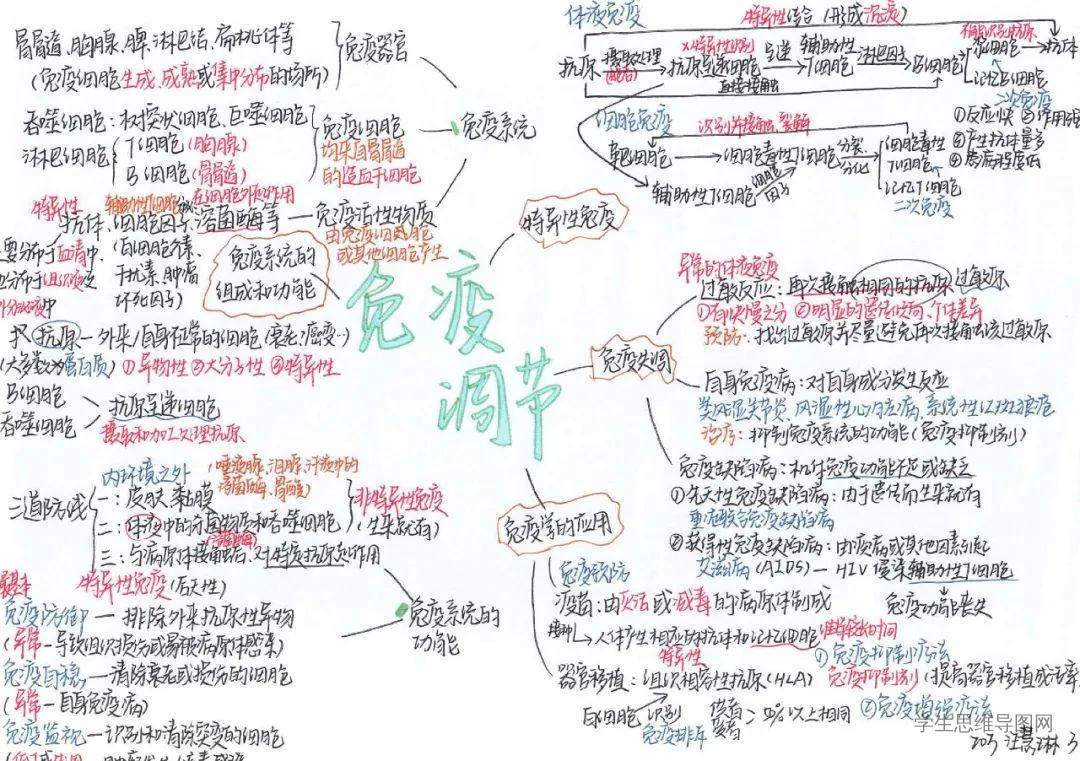 骨骼髓、胸腺、脾、淋巴结、扁桃体等
(免疫细胞生成、成熟或集中分布的场所)
免疫器官
吞噬细胞:树突状细胞、巨噬细胞
淋巴细胞
T细胞(胸腺)
B细胞(骨髓)
免疫细胞
均来自骨髓
的造血干细胞
免疫系统
特异性
辅助性T细胞
在细胞外起作用
抗体、细胞因子、溶菌酶等—免疫活性物质
由免疫细胞
或其他细胞产生
要分布于血清中,
分布于组织液
外分泌液中
白细胞介素、
干扰素、肿瘤
坏死因子)
免疫系统的
组成和功能
免疫
调节
抗原—外来/自身
的细胞(衰老、癌变…)
(大多数为蛋白质) ①异物性②大分子性③特异性
B细胞
吞噬细胞
抗原呈递细胞
摄取和加工处理抗原
三道防线
内环境之外
(唾液腺、泪腺、汗液中的
溶菌酶、胃酸)
一:皮肤、黏膜
二:体液中的杀菌物质和吞噬细胞
(溶菌酶)
三:与病原体接触后、对特定抗原起作用
非特异性免疫
(生来就有)
特异性免疫(后天性)
免疫系统的
功能
免疫防御—排除外来抗原性异物
(异常—导致组织损伤或易被病原体感染)
免疫自稳—清除衰老或损伤的细胞
(异常—自身免疫病)
免疫监视—识别和清除突变的细胞
体液免疫
特异性结合(形成沉淀)
抗原
摄取处理
抗原呈递细胞
呈递
辅助性
T细胞
淋巴因子
B细胞
直接接触
浆细胞
抗体
记忆B细胞
二次免疫
①反应快
②产生抗体量多
细胞免疫
识别并接触、裂解
靶细胞
细胞毒性T细胞
分裂
分化
细胞毒性
T细胞
记忆T细胞
二次免疫
辅助性T细胞
细胞
因子
特异性免疫
异常的体液免疫
过敏反应:再次接触相同的抗原 过敏原
①有快慢之分 ②明显的遗传倾向、个体差异
预防:找出过敏原并尽量避免再次接触该过敏原
免疫失调
自身免疫病:对自身成分发生反应
类风湿关节炎、风湿性心脏病、系统性红斑狼疮
治疗:抑制免疫系统的功能(免疫抑制剂)
免疫缺陷病:机体免疫功能不足或缺乏
①先天性免疫缺陷病:由于遗传而生来就有
重症联合免疫缺陷病
②获得性免疫缺陷病:由疾病或其他因素引起
艾滋病(AIDS)—HIV侵染辅助性T细胞
免疫功能丧失
免疫学的应用
免疫预防
疫苗:由灭活或减毒的病原体制成
接种
人体产生相应的抗体和记忆细胞
特异性
器官移植:组织相容性抗原(HLA)
白细胞 识别
免疫排斥
供者
受者
>50%以上相同
①免疫抑制疗法
免疫抑制剂(提高器官移植成活率
②免疫增强疗法
学生思维导图网